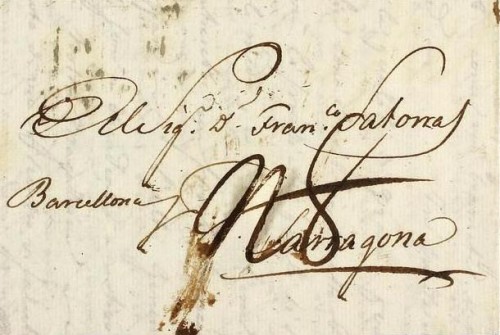 Al Sig. D. Fran.co Satorras
Barcellona
Tarragona